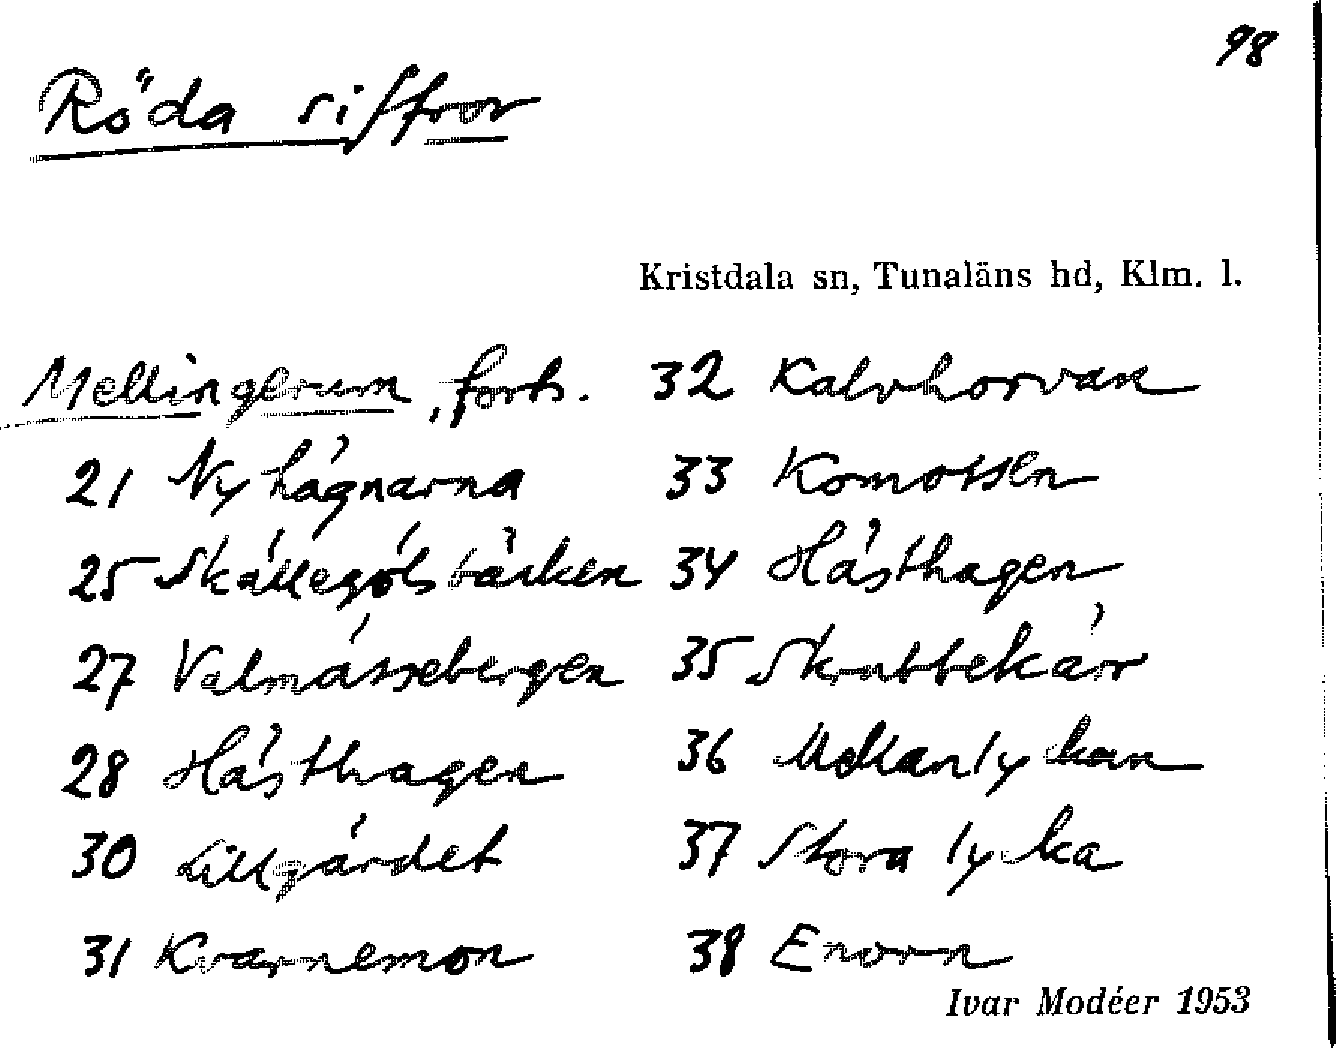 98
Röda siffror
Kristdala sn, Tunaläns hd, Klm. l.
Mellingerum, forts.
21 Nyhägnarna
25 Skällegölsbäcken
27 Valmässebergen
28 Hästhagen
30 Lillgärdet
31 Kvarnemon
32 Kalvhorvan
33 Komossen
34 Hästhagen
35 Skrubbekärr
36 Mellanlyckan
37 Stora lycka
38 Enorn
Ivar Modéer 1953